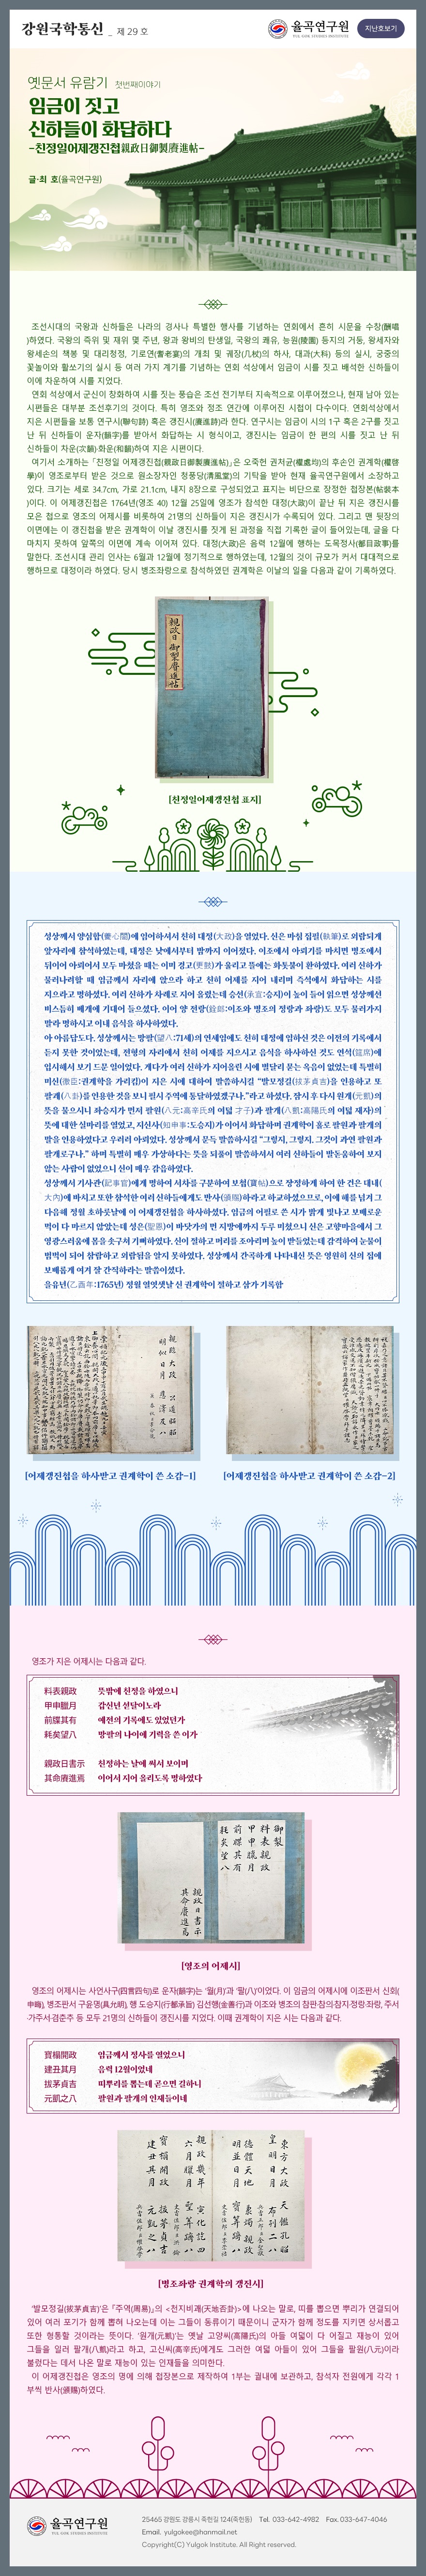 강원국학통신 _ 제 29 호
율곡연구원
YUL GOK STUDIES INSTITUTE
지난호보기
옛문서 유람기 첫번째이야기
임금이 짓고
신하들이 화답하다
-친정일어제갱진첩親政日御製賡進帖-
글·최 호(율곡연구원)
조선시대의 국왕과 신하들은 나라의 경사나 특별한 행사를 기념하는 연회에서 흔히 시문을 수창(酬唱
)하였다. 국왕의 즉위 및 재위 몇 주년, 왕과 왕비의 탄생일, 국왕의 쾌유, 능원(陵園) 등지의 거동, 왕세자와
왕세손의 책봉 및 대리청정, 기로연(耆老宴)의 개최 및 궤장(几杖)의 하사, 대과(大科) 등의 실시, 궁중의
꽃놀이와 활쏘기의 실시 등 여러 가지 계기를 기념하는 연회 석상에서 임금이 시를 짓고 배석한 신하들이
이에 차운하여 시를 지었다.
연회 석상에서 군신이 창화하여 시를 짓는 풍습은 조선 전기부터 지속적으로 이루어졌으나, 현재 남아 있는
시편들은 대부분 조선후기의 것이다. 특히 영조와 정조 연간에 이루어진 시첩이 다수이다. 연회석상에서
지은 시편들을 보통 연구시(聯句詩) 혹은 갱진시(賡進詩)라 한다. 연구시는 임금이 시의 1구 혹은 2구를 짓고
난 뒤 신하들이 운자(韻字)를 받아서 화답하는 시 형식이고, 갱진시는 임금이 한 편의 시를 짓고 난 뒤
신하들이 차운(次韻)·화운(和韻)하여 지은 시편이다.
여기서 소개하는 「친정일 어제갱진첩(親政日御製賡進帖)」은 오죽헌 권처균(權處均)의 후손인 권계학(權啓
學)이 영조로부터 받은 것으로 원소장자인 청풍당(淸風堂)의 기탁을 받아 현재 율곡연구원에서 소장하고
있다. 크기는 세로 34.7cm, 가로 21.1cm, 내지 8장으로 구성되었고 표지는 비단으로 장정한 첩장본(帖裝本
)이다. 이 어제갱진첩은 1764년(영조 40) 12월 25일에 영조가 참석한 대정(大政)이 끝난 뒤 지은 갱진시를
모은 첩으로 영조의 어제시를 비롯하여 21명의 신하들이 지은 갱진시가 수록되어 있다. 그리고 맨 뒷장의
이면에는 이 갱진첩을 받은 권계학이 이날 갱진시를 짓게 된 과정을 직접 기록한 글이 들어있는데, 글을 다
마치지 못하여 앞쪽의 이면에 계속 이어져 있다. 대정(大政)은 음력 12월에 행하는 도목정사(都目政事)를
말한다. 조선시대 관리 인사는 6월과 12월에 정기적으로 행하였는데, 12월의 것이 규모가 커서 대대적으로
행하므로 대정이라 하였다. 당시 병조좌랑으로 참석하였던 권계학은 이날의 일을 다음과 같이 기록하였다.
親政日御製賡進帖
[친정일어제갱진첩 표지]
성상께서 양심합(養心閤)에 임어하셔서 친히 대정(大政)을 열었다. 신은 마침 집필(執筆)로 외람되게
앞자리에 참석하였는데, 대정은 낮에서부터 밤까지 이어졌다. 이조에서 아뢰기를 마치면 병조에서
뒤이어 아뢰어서 모두 마쳤을 때는 이미 경고(更鼓)가 울리고 뜰에는 화톳불이 환하였다. 여러 신하가
물러나려할 때 임금께서 자리에 앉으라 하고 친히 어제를 지어 내리며 즉석에서 화답하는 시를
지으라고 명하셨다. 여러 신하가 차례로 지어 올렸는데 승선(承宣:승지)이 높이 들어 읽으면 성상께선
비스듬히 베개에 기대어 들으셨다. 이어 양 전랑(銓郞:이조와 병조의 정랑과 좌랑)도 모두 물러가지
말라 명하시고 이내 음식을 하사하였다.
아 아름답도다. 성상께서는 망팔(望八:71세)의 연세임에도 친히 대정에 임하신 것은 이전의 기록에서
듣지 못한 것이었는데, 전형의 자리에서 친히 어제를 지으시고 음식을 하사하신 것도 연석(筵席)에
입시해서 보기 드문 일이었다. 게다가 여러 신하가 지어올린 시에 별달리 묻는 옥음이 없었는데 특별히
미신(微臣:권계학을 가리킴)이 지은 시에 대하여 말씀하시길 "발모정길(拔茅貞吉)을 인용하고 또
팔개(八卦)를 인용한 것을 보니 필시 주역에 능통하였겠구나."라고 하셨다. 잠시 후 다시 원개(元凱)의
뜻을 물으시니 좌승지가 먼저 팔원(八元:高辛氏의 여덟 才子)과 팔개(八凱:高陽氏의 여덟 재자)의
뜻에 대한 실마리를 열었고, 지신사(知申事:도승지)가 이어서 화답하며 권계학이 홀로 팔원과 팔개의
말을 인용하였다고 우러러 아뢰었다. 성상께서 문득 말씀하시길 "그렇지, 그렇지. 그것이 과연 팔원과
팔개로구나." 하며 특별히 매우 가상하다는 뜻을 되풀이 말씀하셔서 여러 신하들이 발돋움하여 보지
않는 사람이 없었으니 신이 매우 감읍하였다.
성상께서 기사관(記事官)에게 명하여 서사를 구분하여 보첩(寶帖)으로 장정하게 하여 한 건은 대내(
大內)에 바치고 또한 참석한 여러 신하들에게도 반사(頒賜)하라고 하교하셨으므로, 이에 해를 넘겨 그
다음해 정월 초하룻날에 이 어제갱진첩을 하사하셨다. 임금의 어필로 쓴 시가 밝게 빛나고 보배로운
먹이 다 마르지 않았는데 성은(聖恩)이 바닷가의 먼 지방에까지 두루 미쳤으니 신은 고향마을에서 그
영광스러움에 몸을 솟구쳐 기뻐하였다. 신이 절하고 머리를 조아리며 높이 받들었는데 감격하여 눈물이
범벅이 되어 참람하고 외람됨을 알지 못하였다. 성상께서 간곡하게 나타내신 뜻은 영원히 신의 집에
보배롭게 여겨 잘 간직하라는 말씀이셨다.
을유년(乙酉年:1765년) 정월 열엿샛날 신 권계학이 절하고 삼가 기록함
[어제갱진첩을 하사받고 권계학이 쓴 소감-1]
[어제갱진첩을 하사받고 권계학이 쓴 소감-2]
영조가 지은 어제시는 다음과 같다.
料表親政 뜻밖에 친정을 하였으니
甲申臘月 갑신년 섣달이노라
前牒其有 예전의 기록에도 있었던가
耗矣望八 망팔의 나이에 기력을 쓴 이가
親政日書示 친정하는 날에 써서 보이며
其命賡進焉 이어서 지어 올리도록 명하였다
御製
料表親政
甲申臘月
前牒其有
耗矣望八
親政日書示
其命賡進焉
[영조의 어제시]
영조의 어제시는 사언사구(四言四句)로 운자(韻字)는 '월(月)'과 '팔(八)'이었다. 이 임금의 어제시에 이조판서 신회(
申晦), 병조판서 구윤명(具允明), 행 도승지(行都承旨) 김선행(金善行)과 이조와 병조의 참판·참의·참지·정랑·좌랑, 주서
·가주서·겸춘추 등 모두 21명의 신하들이 갱진시를 지었다. 이때 권계학이 지은 시는 다음과 같다.
寶榻開政 임금께서 정사를 열었으니
建丑其月 음력 12월이었네
拔茅貞吉 띠뿌리를 뽑는데 곧으면 길하니
元凱之八 팔원과 팔개의 인재들이네
[병조좌랑 권계학의 갱진시]
'발모정길(拔茅貞吉)'은 『주역(周易)』의 <천지비괘(天地否卦)>에 나오는 말로, 띠를 뽑으면 뿌리가 연결되어
있어 여러 포기가 함께 뽑혀 나오는데 이는 그들이 동류이기 때문이니 군자가 함께 정도를 지키면 상서롭고
또한 형통할 것이라는 뜻이다. '원개(元凱)'는 옛날 고양씨(高陽氏)의 아들 여덟이 다 어질고 재능이 있어
그들을 일러 팔개(八凱)라고 하고, 고신씨(高辛氏)에게도 그러한 여덟 아들이 있어 그들을 팔원(八元)이라
불렀다는 데서 나온 말로 재능이 있는 인재들을 의미한다.
이 어제갱진첩은 영조의 명에 의해 첩장본으로 제작하여 1부는 궐내에 보관하고, 참석자 전원에게 각각 1
부씩 반사(頒賜)하였다.
율곡연구원
YUL GOK STUDIES INSTITUTE
25465 강원도 강릉시 죽헌길 124(죽헌동) Tel. 033-642-4982 Fax. 033-647-4046
Email. yulgokee@hanmail.net
Copyright(C) Yulgok Institute. All Right reserved.